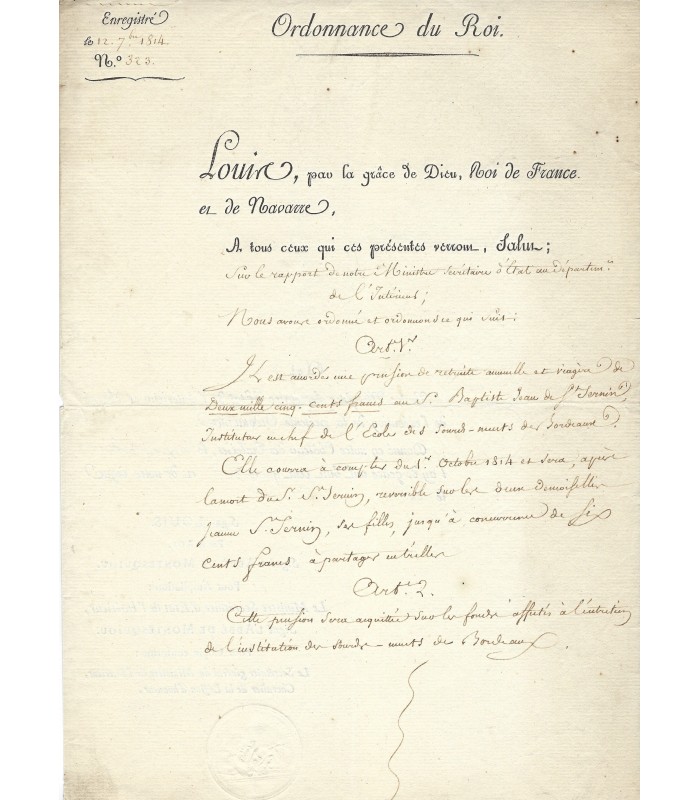 Enregistré
le 12. 7bre 1814.
N.º 323.
Ordonnance du Roi.
Louis, par la grâce de Dieu, Roi de France
et de Navarre,
A tous ceux qui ces présentes verront, Salut;
Sur le rapport de notre Ministre secrétaire d'Etat au Départem.t
de l'Intérieur;
Nous avons ordonné et ordonnons ce qui suit:
Art. 1.er
Il est accordé une pension de retraite annuelle et viagère de
Deux mille cinq-cents francs au S.r Baptiste Jean de St. Sernin,
Instituteur en chef de l'Ecole des Sourds-muets de Bordeaux.
Elle courra à compter du 1.er Octobre 1814 et sera, après
la mort du S.r St. Sernin, reversible sur les deux demoiselles
Jeanne St. Sernin, ses filles, jusqu'à concurrence de six
cents francs à partager entr'elles
Art. 2.
Cette pension sera acquittée sur les fonds affectés à l'entretien
de l'institution des sourds-muets de Bordeaux.